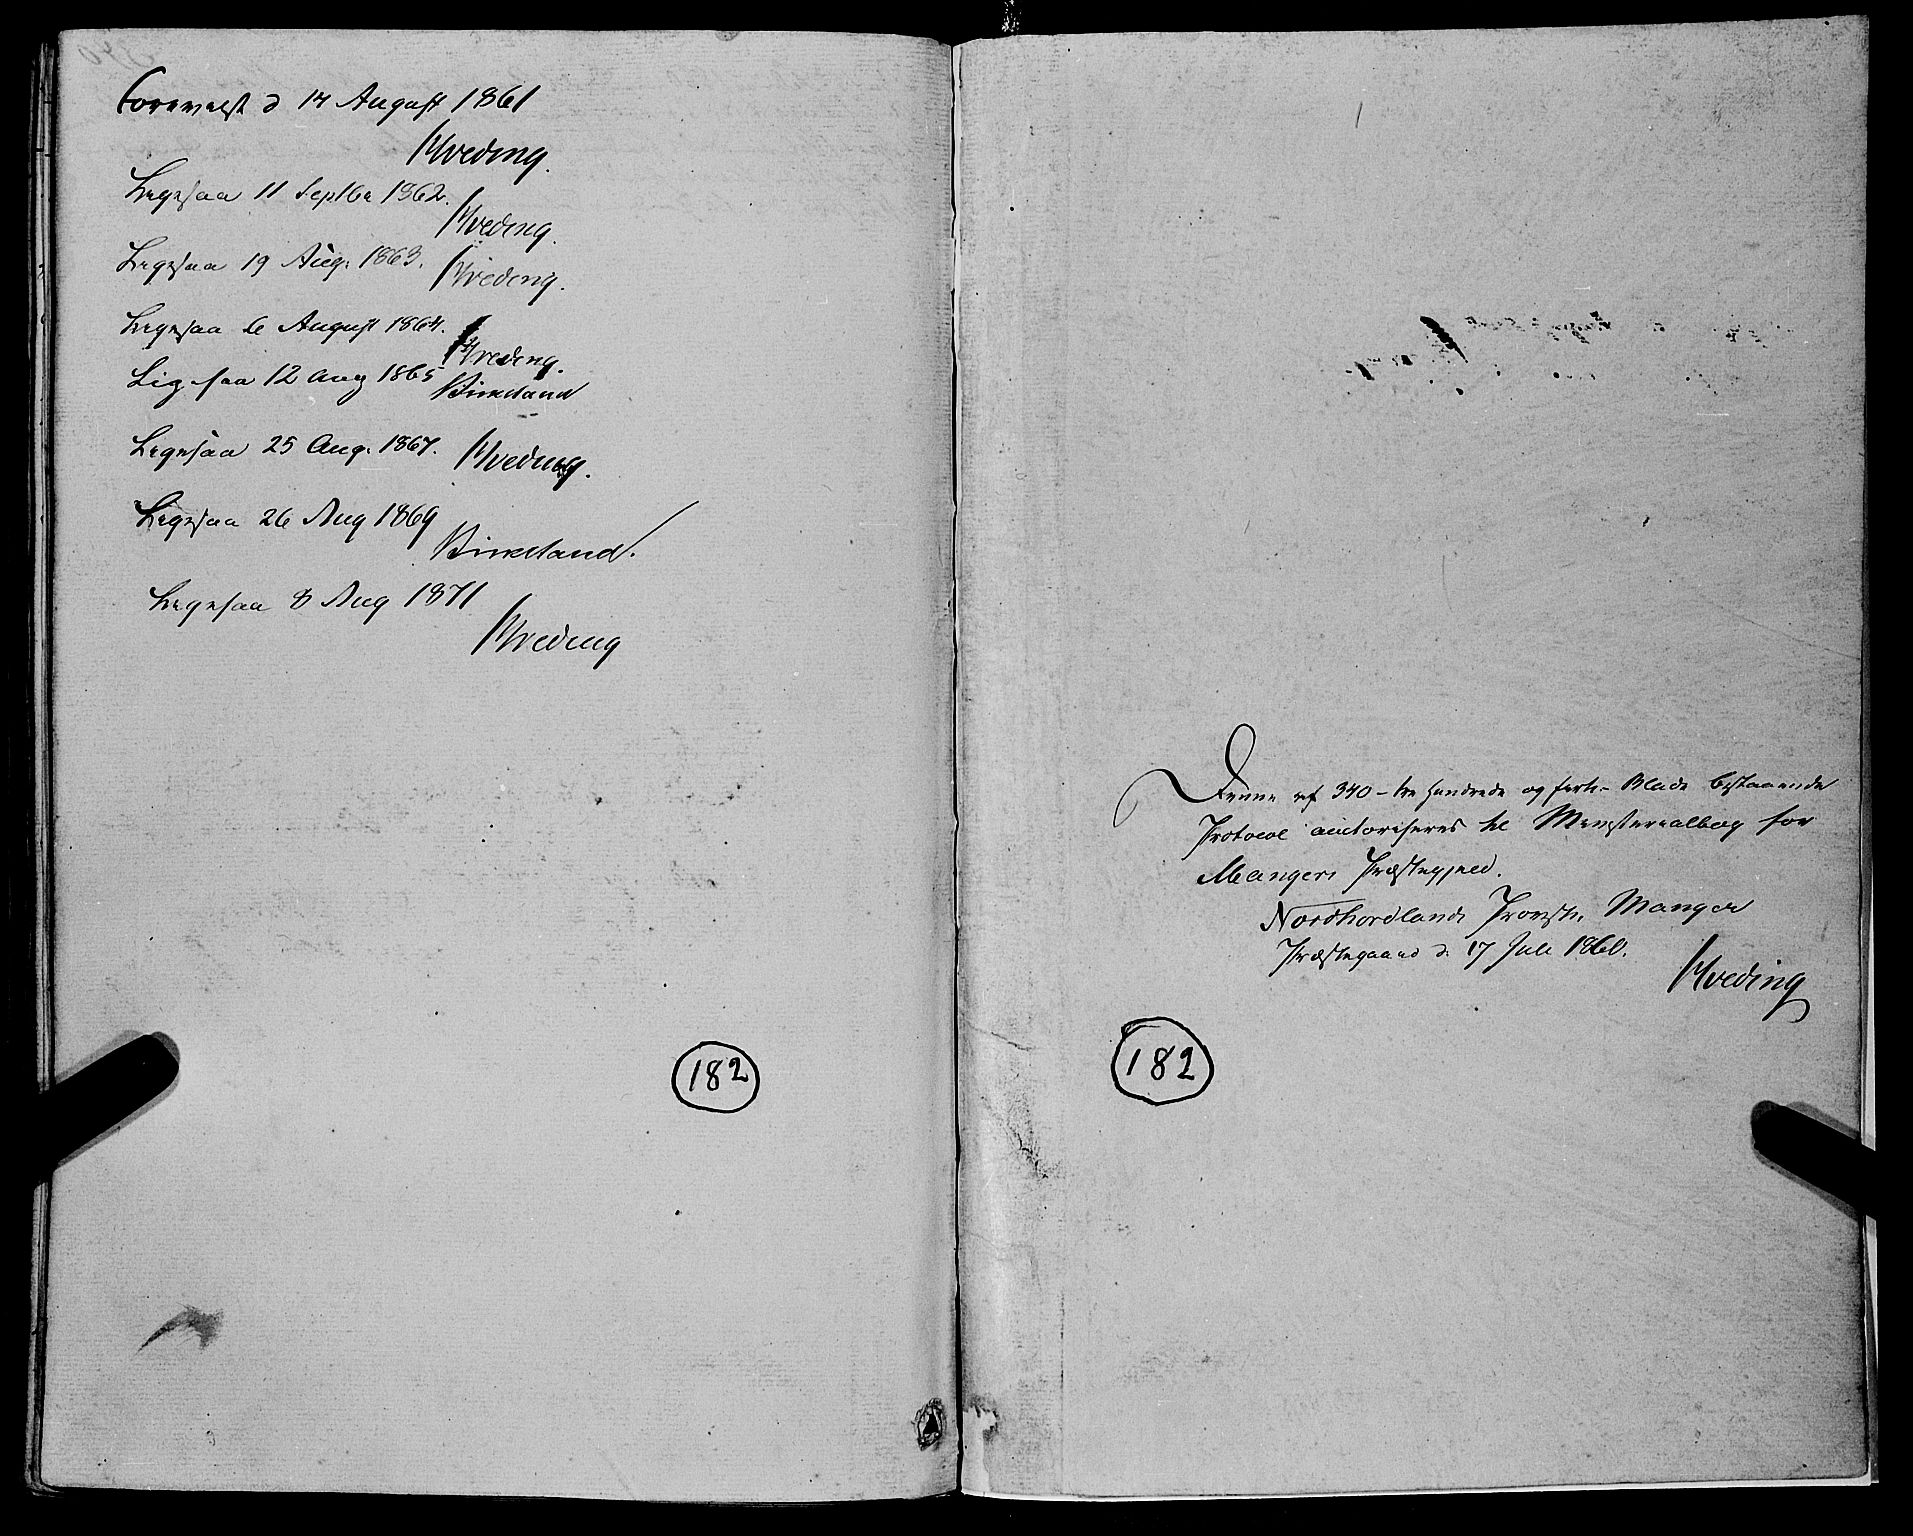 Forevist d 14 August 1861
Kveding.
Ligesaa 11 Septbr 1862.
Kveding.
Ligesaa 19 Aug. 1863.
Kveding.
Ligesaa 6 August 1864.
Kveding.
Ligesaa 12 Aug 1865
Birkeland
Ligesaa 25 Aug. 1867.
Kveding.
Ligesaa 26 Aug 1869
Birkeland.
Ligesaa 8 Aug 1871
Kveding
182
Denne af 340 - tre Hundrede og forti - Blade bestaaende
Protocol autoriseres til Ministerialbog for
Mangers Præstegjeld.
Nordhordlands Provsti, Manger
Præstegaard d. 17 Juli 1860.
Kveding
182